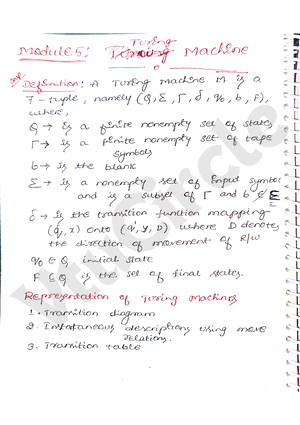 Turing
Module 5: Turing Machine
Definition: A Turing Machine M is a
7-tuple, namely (Q, Σ, Γ, δ, q₀, b, F),
where,
Q → is a finite nonempty set of states
Γ → is a finite nonempty set of tape
symbols
b → is the blank
Σ → is a nonempty set of input symbol
and is subset of Γ and b ∉ Σ
δ → is the transition function mapping
(q, x) onto (q', y, D) where D denotes
the direction of movement of R/W
q₀ ∈ Q initial state
F ⊆ Q is the set of final states.
Representation of Turing Machines
1. Transition diagram
2. Instantaneous descriptions using move
relations.
3. Transition table